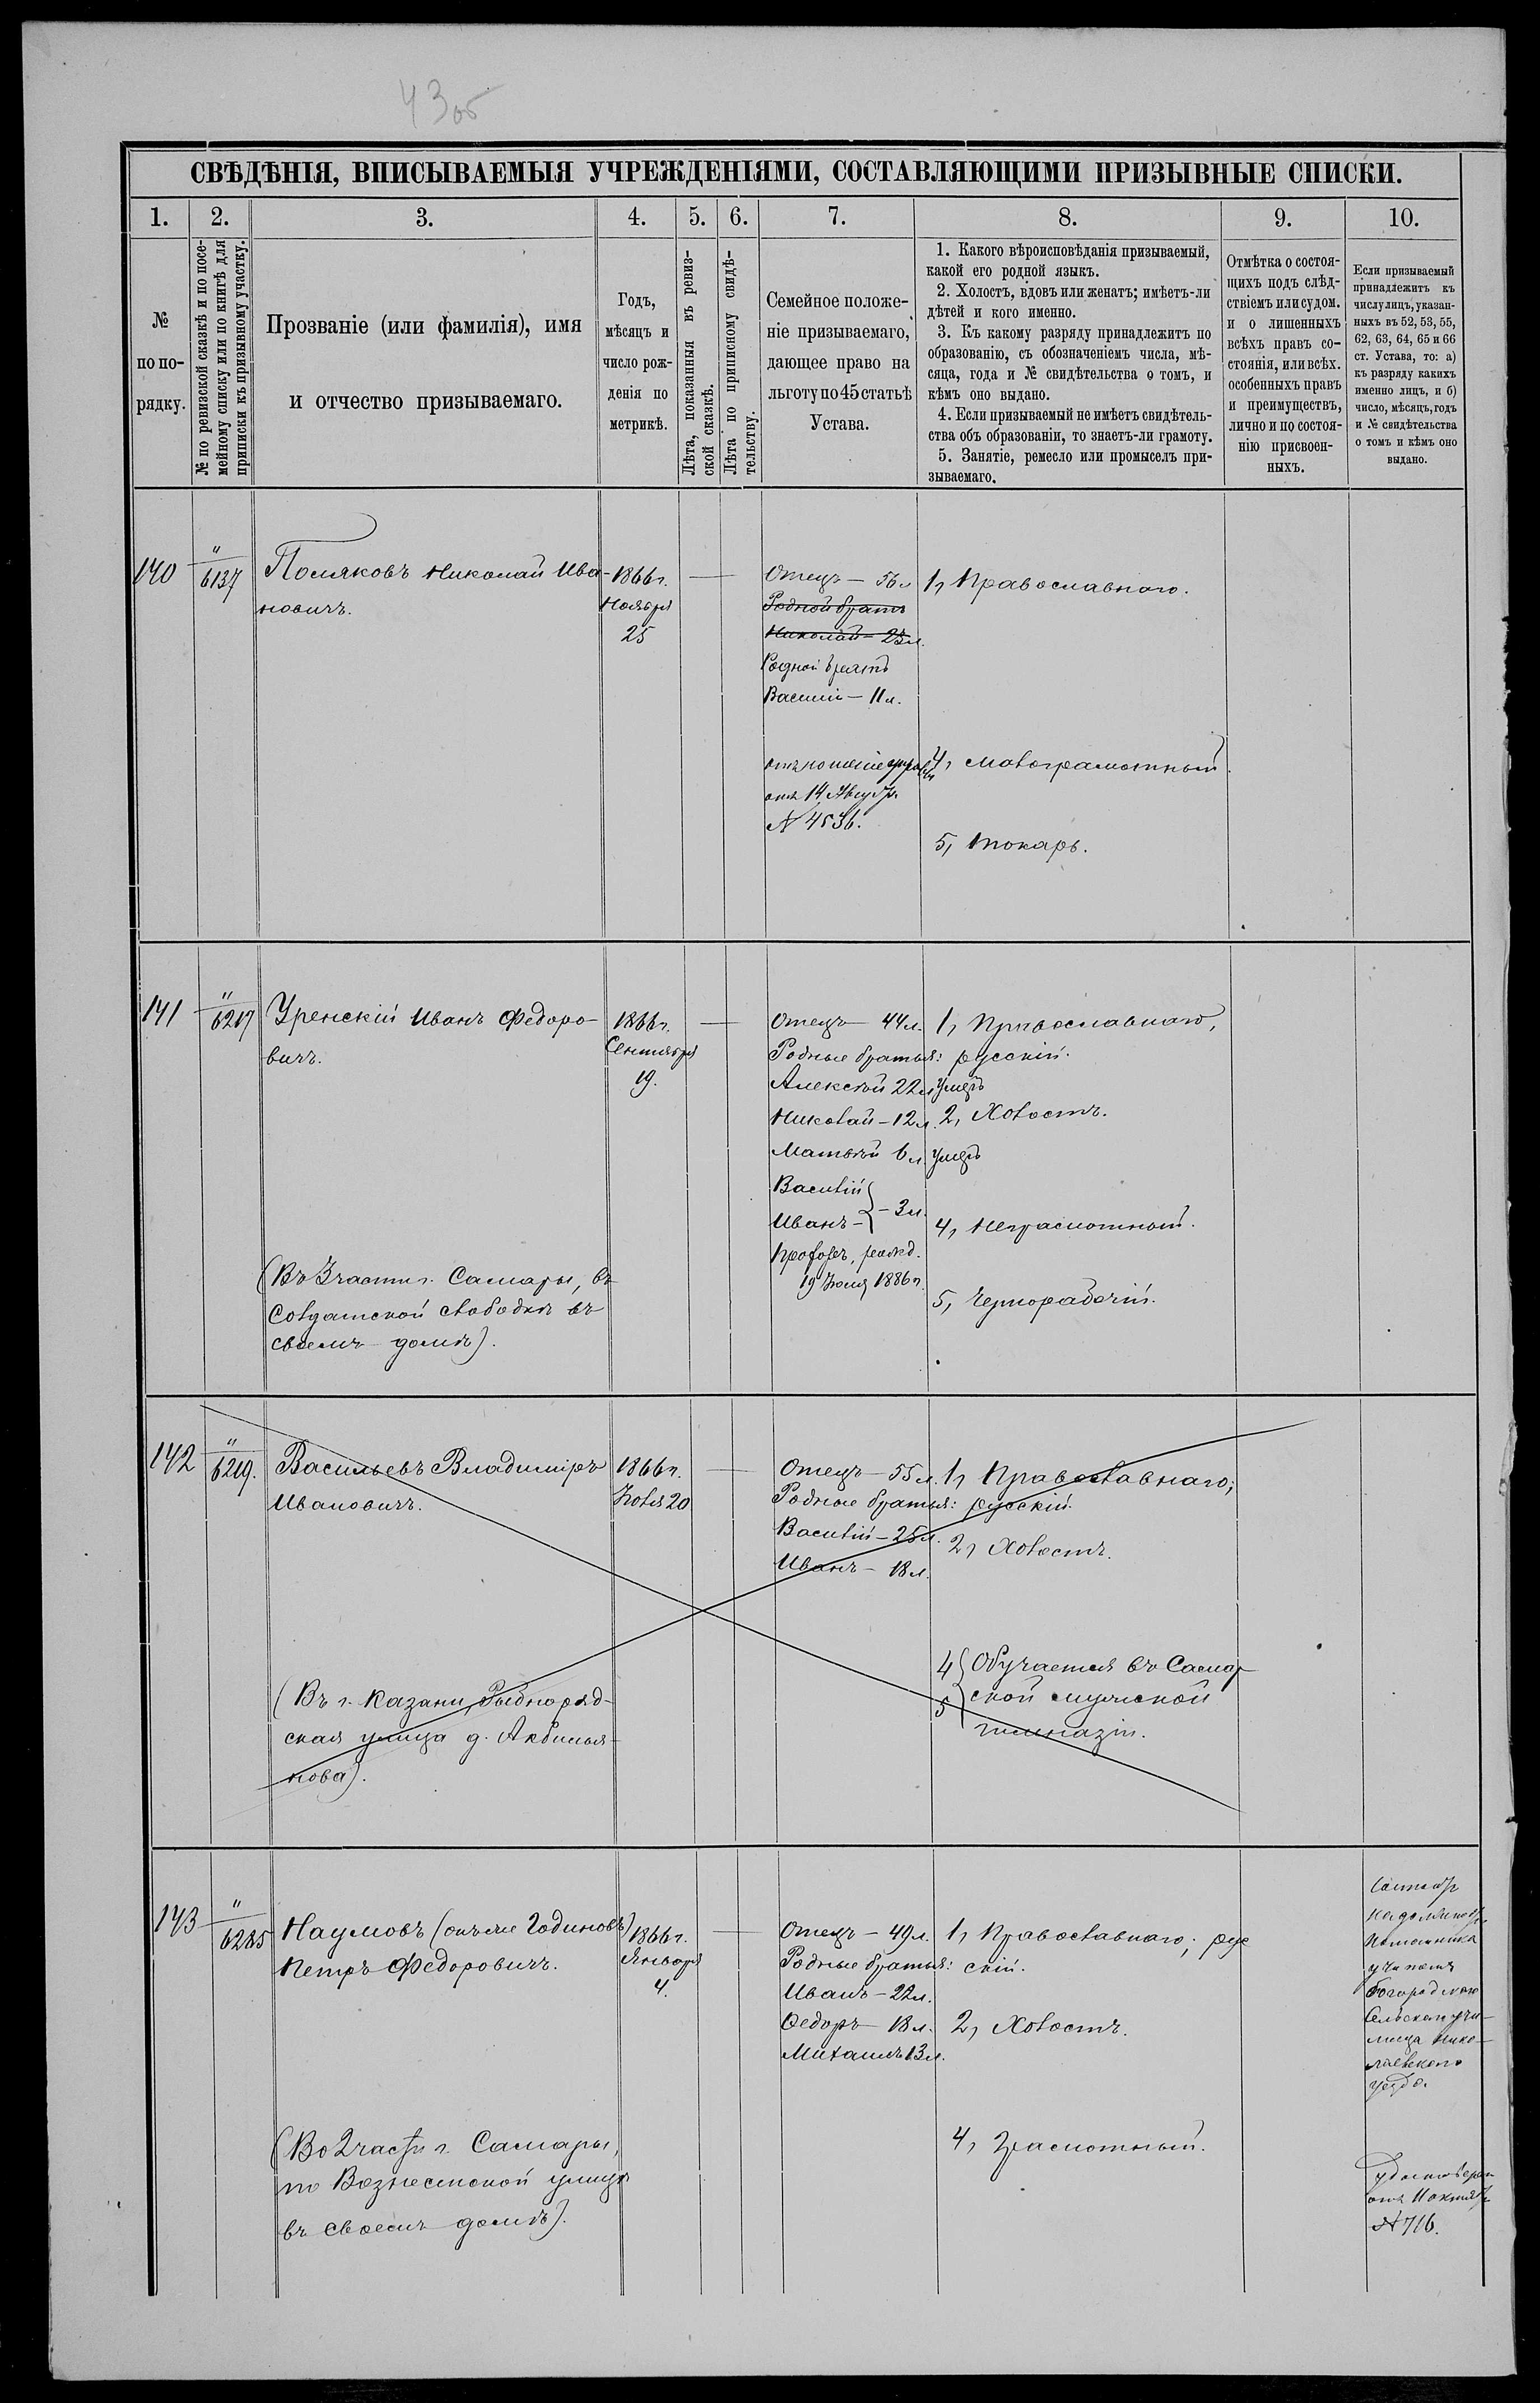 43 об
СВѢДѢНІЯ, ВПИСЫВАЕМЫЯ УЧРЕЖДЕНІЯМИ, СОСТАВЛЯЮЩИМИ ПРИЗЫВНЫЕ СПИСКИ.
1.
2.
3.
4.
5.
6.
7.
8.
9.
10.
№
по по-
рядку.
№ по ревизской сказкѣ и по посе-
мейному списку или по книгѣ для
приписки къ призывному участку.
Прозваніе (или фамилія), имя
и отчество призываемаго.
Годъ,
мѣсяцъ и
число рож-
денія по
метрикѣ.
Лѣта, показанныя въ ревиз-
ской сказкѣ.
Лѣта по приписному свидѣ-
тельству.
Семейное положе-
ніе призываемаго,
дающее право на
льготу по 45 статьѣ
Устава.
1. Какого вѣроисповѣданія призываемый,
какой его родной языкъ.
2. Холостъ, вдовъ или женатъ; имѣетъ-ли
дѣтей и кого именно.
3. Къ какому разряду принадлежитъ по
образованію, съ обозначеніемъ числа, мѣ-
сяца, года и № свидѣтельства о томъ, и
кѣмъ оно выдано.
4. Если призываемый не имѣетъ свидѣтель-
ства объ образованіи, то знаетъ-ли грамоту.
5. Занятіе, ремесло или промыселъ при-
зываемаго.
Отмѣтка о состоя-
щихъ подъ слѣд-
ствіемъ или судом.
и о лишенныхъ
всѣхъ правъ со-
стоянія, или всѣх.
особенныхъ правъ
и преимуществъ,
лично и по состоя-
нію присвоен-
ныхъ.
Если призываемый
принадлежитъ къ
числу лицъ, указан-
ныхъ въ 52, 53, 55,
62, 63, 64, 65 и 66
ст. Устава, то: а)
къ разряду какихъ
именно лицъ, и б)
число, мѣсяцъ, годъ
и № свидѣтельства
о томъ и кѣмъ оно
выдано.
140
"
6137
Поляковъ Николай Ива-
новичъ.
1866 г.
Ноября
25
Отецъ — 56 л
Родной братъ
Николай — 23 л.
Родной братъ
Василій — 11 л.
отношеніе управы
отъ 14 Августа
№ 4536.
1, Православнаго.
4, малограмотный.
5, токарь.
141
"
6217
Уренскій Иванъ Федоро-
вичъ.
(Въ 3 части г. Самары, въ
Солдатской слободкѣ въ
своемъ домѣ).
1866 г.
Сентября
19.
Отецъ — 44 л.
Родные братья:
Алексѣй 22 л умеръ
Николай — 12 л.
Матвѣй 6 л. умеръ
Василій
Иванъ — } — 3 л.
рожд.
19 Іюня 1886 г.
1, Православнаго,
русскій.
2, Холостъ.
4, Неграмотный.
5, Чернорабочій.
142
"
6219.
Васильевъ Владиміръ
Ивановичъ.
(Въ г. Казани, Рыбноряд-
ская улица д.
нова).
1866 г.
Іюля 20
Отецъ — 55 л.
Родные братья:
Василій — 25 л.
Иванъ — 18 л.
1, Православнаго;
русскій.
2, Холостъ.
4
5 } Обучается въ Самар-
ской мужской
гимназіи.
143
"
6285
Наумовъ (онъ же Годиновъ)
Петръ Федоровичъ.
(Во 2 части г. Самары,
по Вознесенской улицѣ
въ своемъ домѣ).
1866 г.
Января
4.
Отецъ — 49 л.
Родные братья:
Иванъ — 22 л.
Федоръ — 18 л.
Михаилъ 13 л.
1, Православнаго; рус
скій.
2, Холостъ.
4, Грамотный.
на должности
Помощника
учителя
Сельскаго учи-
лища Нико-
лаевскаго
уезда.
удостоверен
отъ 11 октяб
№ 716.